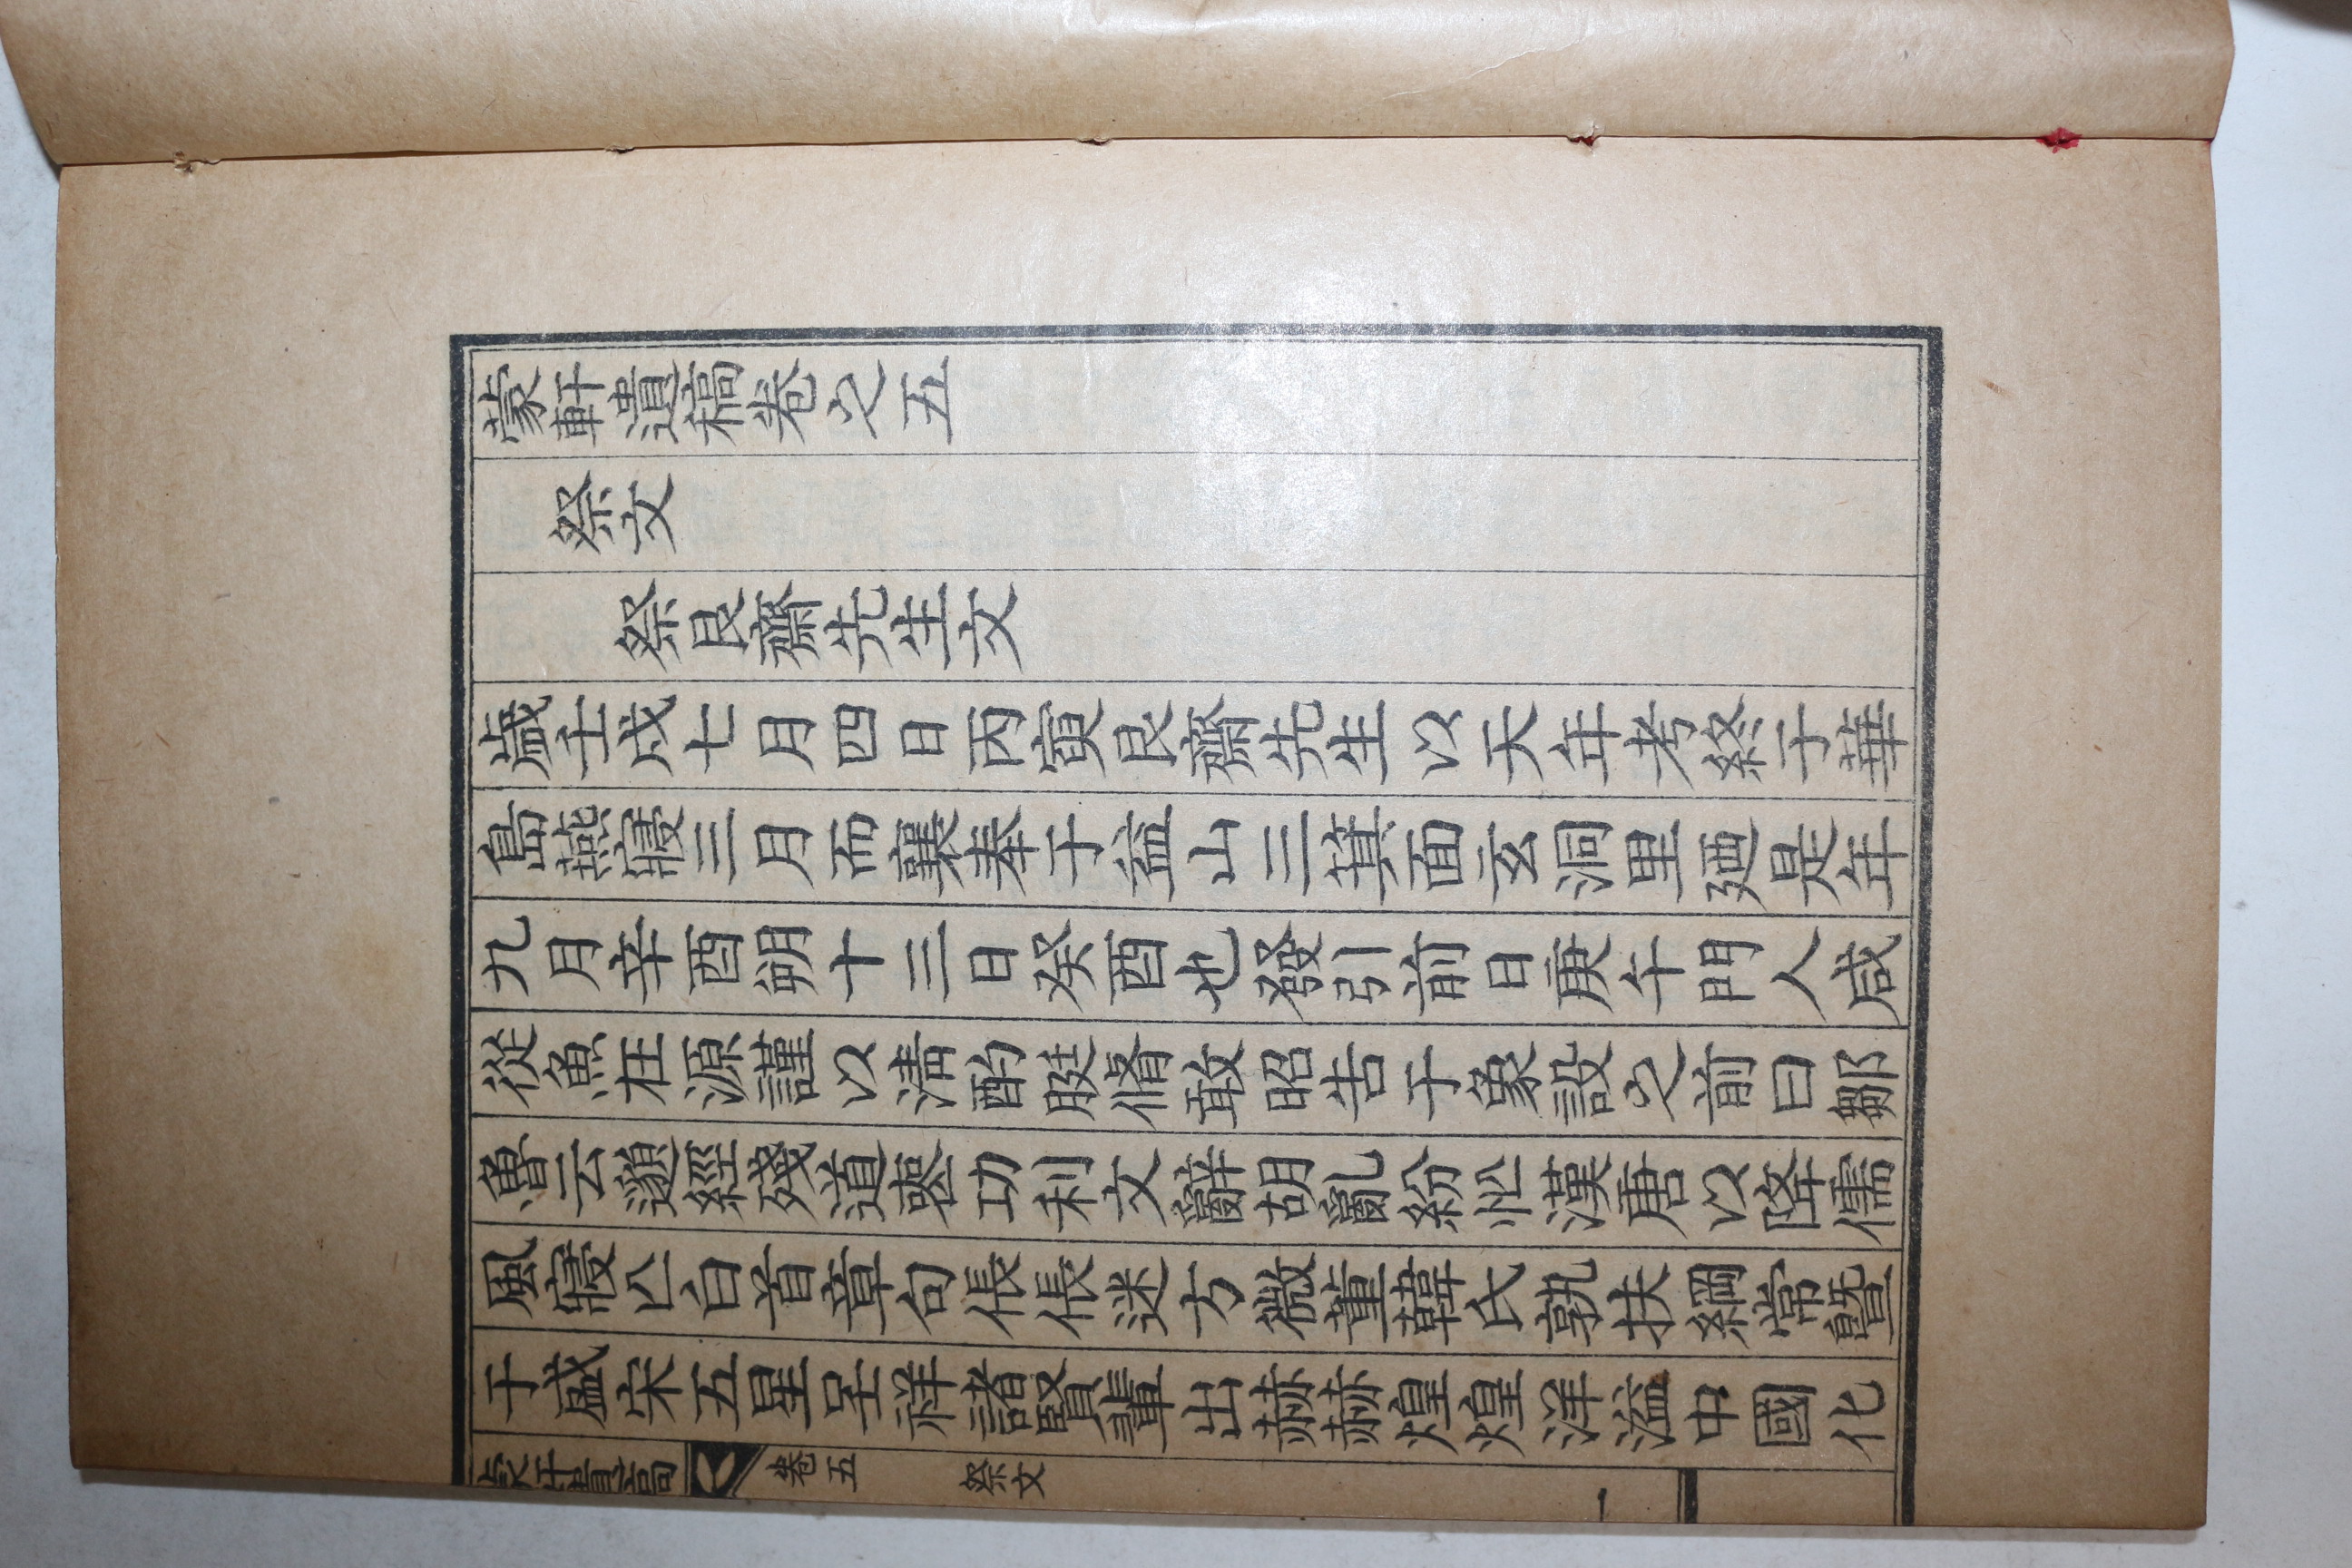 蒙軒遺稿卷之五
祭文
祭艮齋先生文
歲壬戌七月四日丙寅艮齋先生以天年考終于華
島燕寢三月而襄奉于益山三箕面玄洞里迺是年
九月辛酉朔十三日癸酉也發引前日庚午門人咸
從魚在源謹以淸酌脡脩敢昭告于象設之前曰鄒
魯云邈經殘道喪功利文辭胡亂紛㣿漢唐以降儒
風寢亾白首章句倀倀迷方微董韓氏孰扶綱常曁
于盛宋五星呈祥諸賢輩出赫赫煌煌洋溢中國化
蒙軒遺稿 卷五 祭文 一